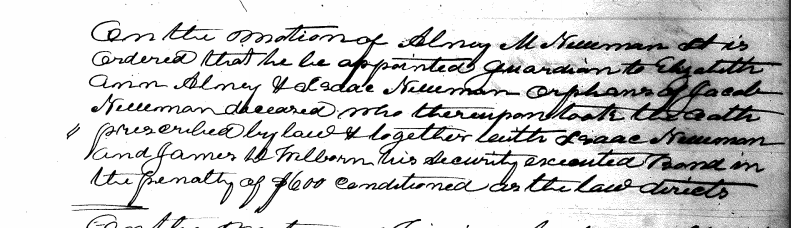 On the motion of Alney M Newman It is
ordered that he be appointed guardian to Elizabeth
Ann Alney & Isaac Newman orphans of Jacob
Newman deceased who thereupon took the oath
prescribed by law & together with Isaac Newman
and James W Wilborn his security executed Bond in
the penalty of $600 conditioned as the law directs
On the